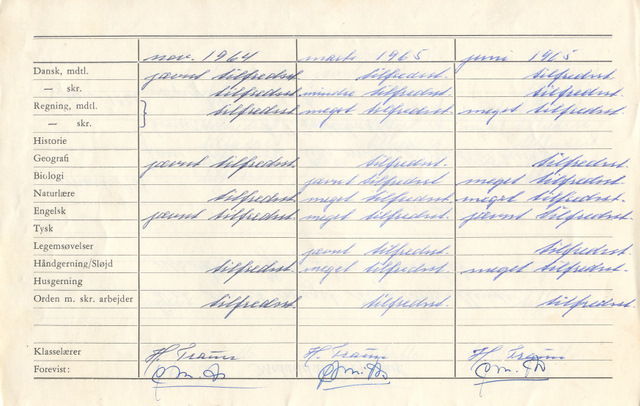 nov. 1964 marts 1965 juni 1965
Dansk, mdtl. jævnt tilfredsst. tilfredsst. tilfredsst.
— skr. tilfredsst. mindre tilfredsst. tilfredsst.
Regning, mdtl. tilfredsst. meget tilfredsst. meget tilfredsst.
— skr.
Historie
Geografi jævnt tilfredsst. tilfredsst. tilfredsst.
Biologi jævnt tilfredsst. meget tilfredsst.
Naturlære tilfredsst. meget tilfredsst. meget tilfredsst.
Engelsk jævnt tilfredsst. meget tilfredsst. jævnt tilfredsst.
Tysk
Legemsøvelser jævnt tilfredsst. tilfredsst.
Håndgerning/Sløjd tilfredsst. meget tilfredsst. meget tilfredsst.
Husgerning
Orden m. skr. arbejder tilfredsst. tilfredsst. tilfredsst.
Klasselærer H. H. H.
Forevist: